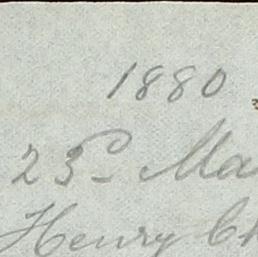 1880
23d Ma
Henry Ch